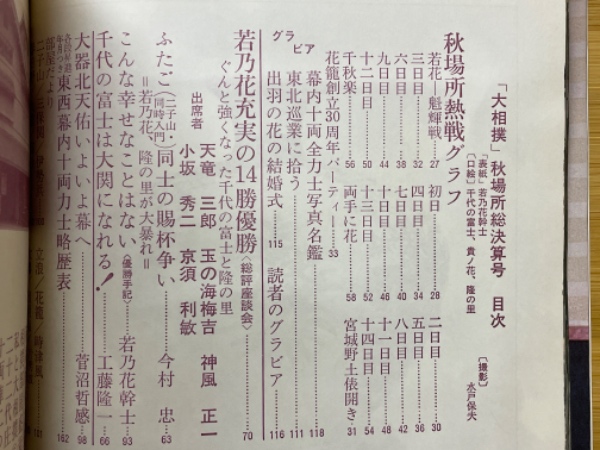 「大相撲」秋場所総決算号 目次
「表紙」若乃花幹士
〔口絵〕千代の富士、貴ノ花、隆の里
〔撮影〕水戸保夫
秋場所熱戦グラフ
若花―魁輝戦……27
初日……28
二日目……30
三日目……32
四日目……34
五日目……36
六日目……38
七日目……40
八日目……42
九日目……44
十日目……46
十一日目……48
十二日目……50
十三日目……52
十四日目……54
千秋楽……56
両手に花……58
宮城野土俵開き……31
花籠創立30周年パーティー……33
グラビア
幕内十両全力士写真名鑑……118
東北巡業に拾う……111
出羽の花の結婚式……115
読者のグラビア……116
若乃花充実の14勝優勝〈総評座談会〉……70
ぐんと強くなった千代の富士と隆の里
出席者 天竜三郎 玉の海梅吉 神風正一
小坂秀二 京須利敏
ふたご(二子山・同時入門)同士の賜杯争い……今村 忠……63
=若乃花、隆の里が大暴れ=
こんな幸せなことはない〈優勝手記〉……若乃花幹士……93
千代の富士は大関になれる!……工藤隆一……66
大器北天佑いよいよ幕へ……菅沼哲感……98
東西幕内十両力士略歴表……162